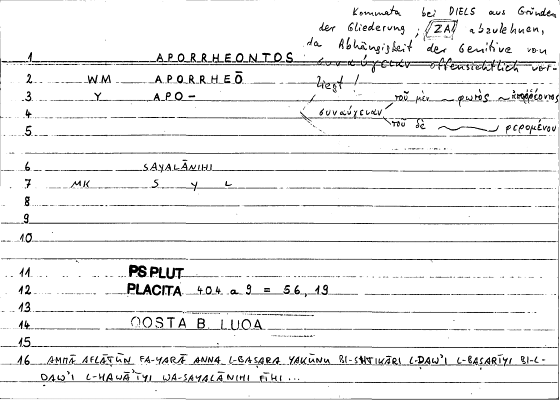 Kommata bei DIELS aus Gründen
der Gliederung, ZA! abzulehnen,
da Abhängigkeit der Genitive von
συναύγειαν offensichtlich vor-
liegt!
τοῦ μὲν ~ φωτὸς ~ ἀπορρέοντος
συναύγειαν
τοῦ δὲ φερομένου
1 APORRHEONTOS
2 WM APORRHEŌ
3 Y APO-
4
5
6 SAYALĀNIHI
7 MK S Y L
8
9
10
11 PS PLUT
12 PLACITA 404 a 9 = 56, 19
13
14 QOSTA B. LUQA
15
16 AMMĀ AFLĀṬŪN FA-YARĀ ANNA L-BAṢARA YAKŪNU BI-SHTIKĀRI L-ḌAW'I L-BAṢARĪYI BI-L-
ḌAW'I L-HAWĀ'ĪYI WA-SAYALĀNIHI FĪHI ...